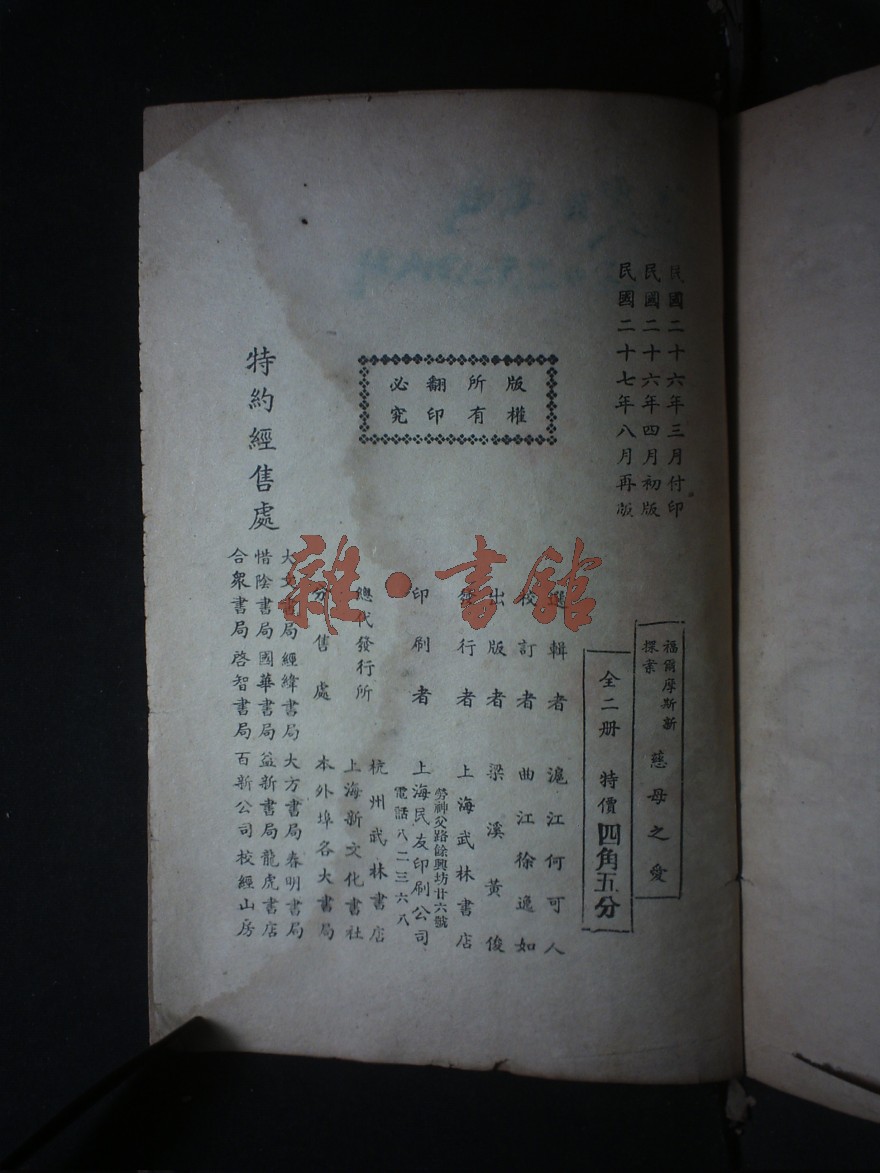 民國二十六年三月付印
民國二十六年四月初版
民國二十七年八月再版
版權
所有
翻印
必究
福爾摩斯新
探案
慈母之愛
全二册 特價四角五分
選輯者 滬江何可人
校訂者 曲江徐逸如
出版者 梁溪黃俊
發行者 上海武林書店
勞神父路餘興坊廿六號
印刷者 上海民友印刷公司
電話八二三六八
總代發行所
杭州武林書店
上海新文化書社
分售處 本外埠各大書局
特約經售處
大文書局 經緯書局 大方書局 春明書局
惜陰書局 國華書局 益新書局 龍虎書店
合衆書局 啓智書局 百新公司 校經山房
雜·書館